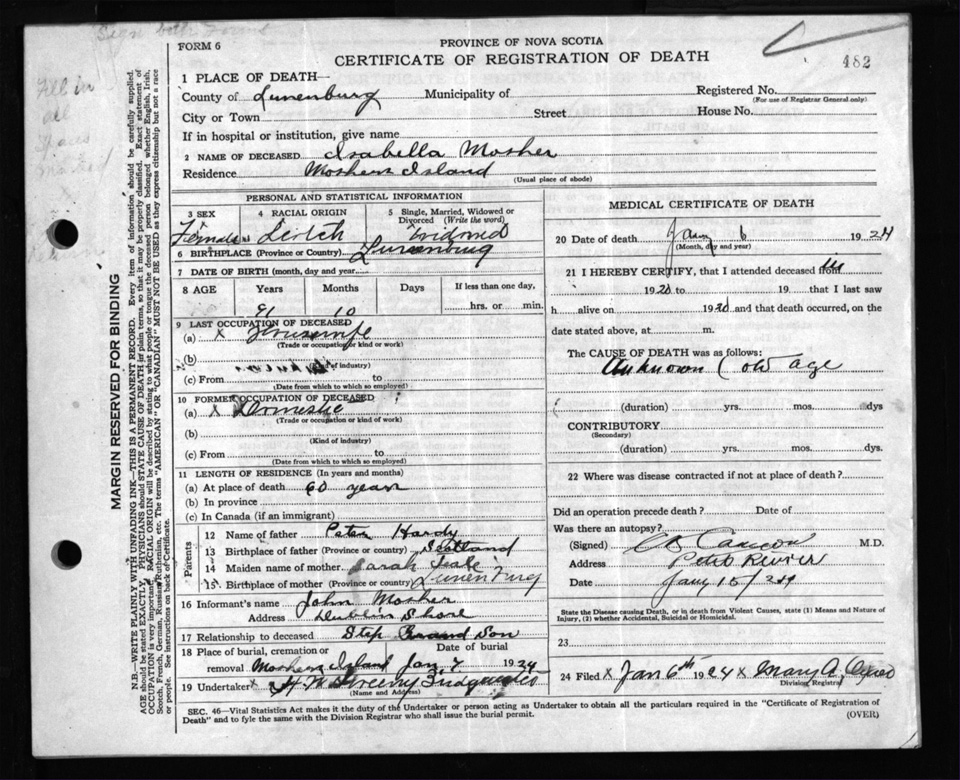 Sign both Forms
Fill in
all
FORM 6
PROVINCE OF NOVA SCOTIA
CERTIFICATE OF REGISTRATION OF DEATH
482
1 PLACE OF DEATH—
County of Lunenburg Municipality of
Registered No.
(For use of Registrar General only)
City or Town Street House No.
If in hospital or institution, give name
2 NAME OF DECEASED Isabella Mosher
Residence Moshers Island
(Usual place of abode)
PERSONAL AND STATISTICAL INFORMATION
3 SEX 4 RACIAL ORIGIN 5 Single, Married, Widowed or Divorced (Write the word)
Female Widowed
6 BIRTHPLACE (Province or Country) Lunenburg
7 DATE OF BIRTH (month, day and year)
8 AGE Years Months Days If less than one day,
91 10 hrs. or min.
9 LAST OCCUPATION OF DECEASED
(a) x Housewife
(Trade or occupation or kind of work)
(b)
(Kind of industry)
(c) From to
(Date from which to which so employed)
10 FORMER OCCUPATION OF DECEASED
(a) x Domestic
(Trade or occupation or kind of work)
(b)
(Kind of industry)
(c) From to
(Date from which to which so employed)
11 LENGTH OF RESIDENCE (In years and months)
(a) At place of death 60 years
(b) In province
(c) In Canada (if an immigrant)
Parents
12 Name of father Peter Hardy
13 Birthplace of father (Province or country) Scotland
14 Maiden name of mother Sarah
15 Birthplace of mother (Province or country) Lunenburg
16 Informant's name John Mosher
Address Dublin Shore
17 Relationship to deceased Step Grand Son
18 Place of burial, cremation or removal Date of burial
Moshers Island Jan 7 1924
19 Undertaker x
(Name and Address)
MEDICAL CERTIFICATE OF DEATH
20 Date of death Jany 6 1924
(Month, day and year)
21 I HEREBY CERTIFY, that I attended deceased from
1920 to 19 that I last saw
h alive on 1920 and that death occurred, on
the date stated above, at m.
The CAUSE OF DEATH was as follows:
Unknown (old age
(duration) yrs. mos. dys
CONTRIBUTORY
(Secondary)
(duration) yrs. mos. dys.
22 Where was disease contracted if not at place of death?
Did an operation precede death? Date of
Was there an autopsy?
(Signed) M.D.
Address Petite Riviere
Date Jany 15/24
State the Disease causing Death, or in death from Violent Causes, state (1) Means and Nature of
Injury, (2) whether Accidental, Suicidal or Homicidal.
23
24 Filed x Jan 6th 1924 x Mary A.
Division Registrar
SEC. 46—Vital Statistics Act makes it the duty of the Undertaker or person acting as Undertaker to obtain all the particulars required in the "Certificate of Registration of
Death" and to fyle the same with the Division Registrar who shall issue the burial permit. (OVER)
MARGIN RESERVED FOR BINDING
N.B.—WRITE PLAINLY WITH UNFADING INK—THIS IS A PERMANENT RECORD. Every item of information should be carefully supplied.
AGE should be stated EXACTLY. PHYSICIANS should STATE CAUSE OF DEATH in plain terms, so that it may be properly classified. Exact statement of
OCCUPATION is very important. RACIAL ORIGIN will be described by stating to what people or tongue the deceased person belonged whether English, Irish,
Scotch, French, German, Russian, Ruthenian, etc. The terms "AMERICAN" OR "CANADIAN" MUST NOT BE USED as they express citizenship but not a race
or people. See instructions on back of Certificate.